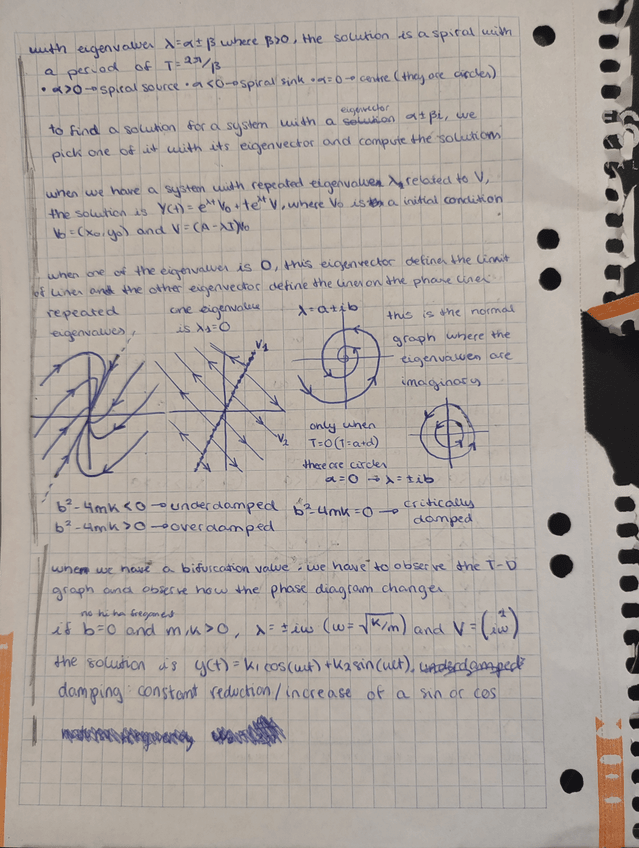 with eigenvalues λ=α±β where β>0, the solution is a spiral with
a period of T=2π/β
• α>0→spiral source • α<0→spiral sink • α=0→centre (they are circles)
to find a solution for a system with a solution eigenvector α±βi, we
pick one of it with its eigenvector and compute the solution
when we have a system with repeated eigenvalues λ, related to V,
the solution is Y(t)=e^λt V₀+te^λt V, where V₀ is a initial condition
V₀=(x₀,y₀) and V=(A-λI)V₀
when one of the eigenvalues is 0, this eigenvector defines the limit
of lines and the other eigenvector define the lines on the phase lines
repeated
eigenvalues
one eigenvalue
is λ₁=0
V₁
V₂
λ=a±ib
this is the normal
graph where the
eigenvalues are
imaginary
only when
T=0(T=a+d)
there are circles
α=0 → λ=±ib
b²-4mk<0→underdamped
b²-4mk>0→overdamped
b²-4mk=0→critically
damped
when we have a bifurcation value, we have to observe the T-D
graph and observe how the phase diagram changes
no hi ha
if b=0 and m,k>0, λ=±iω (ω=√k/m) and V=(1 iω)
the solution is y(t)=k₁cos(ωt)+k₂sin(ωt). underdamped
damping: constant reduction/increase of a sin or cos